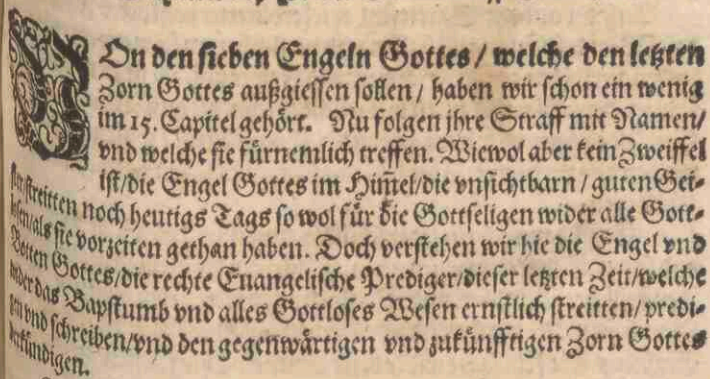 VOn den sieben Engeln Gottes / welche den letzten
Zorn Gottes außgiessen sollen / haben wir schon ein wenig
im 15. Capitel gehört. Nu folgen jhre Straff mit Namen /
vnd welche sie fürnemlich treffen. Wiewol aber kein Zweiffel
ist / die Engel Gottes im Him̄el / die vnsichtbarn / guten Gei-
ster streitten noch heutigs Tags so wol für die Gottseligen wider alle Gott-
losen / als sie vorzeiten gethan haben. Doch verstehen wir hie die Engel vnd
Botten Gottes / die rechte Euangelische Prediger / dieser letzten Zeit / welche
wider das Bapstumb vnd alles Gottloses Wesen ernstlich streitten / predi-
gen vnd schreiben / vnd den gegenwärtigen vnd zukünfftigen Zorn Gottes
verkündigen.